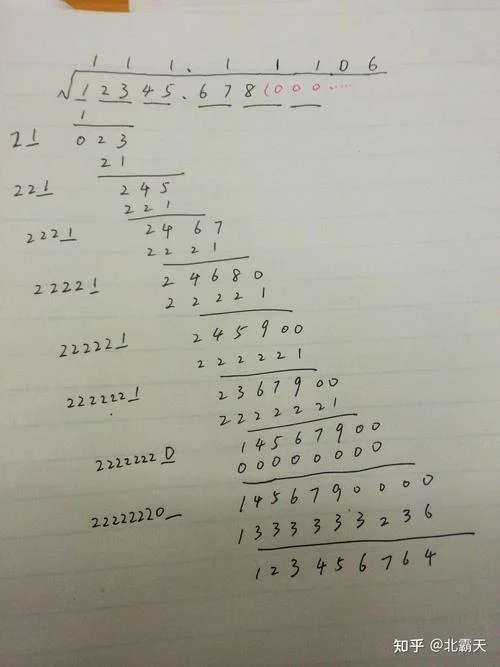 1 1 1 . 1 1 1 0 6
√1 23 45 . 67 8(0 00 .....
1
21 0 2 3
2 1
221 2 4 5
2 2 1
2221 2 4 6 7
2 2 2 1
22221 2 4 6 8 0
2 2 2 2 1
222221 2 4 5 9 0 0
2 2 2 2 2 1
2222221 2 3 6 7 9 0 0
2 2 2 2 2 2 1
22222220 1 4 5 6 7 9 0 0
0 0 0 0 0 0 0 0
22222220_ 1 4 5 6 7 9 0 0 0 0
1 3 3 3 3 3 3 2 3 6
1 2 3 4 5 6 7 6 4
知乎 @北霸天